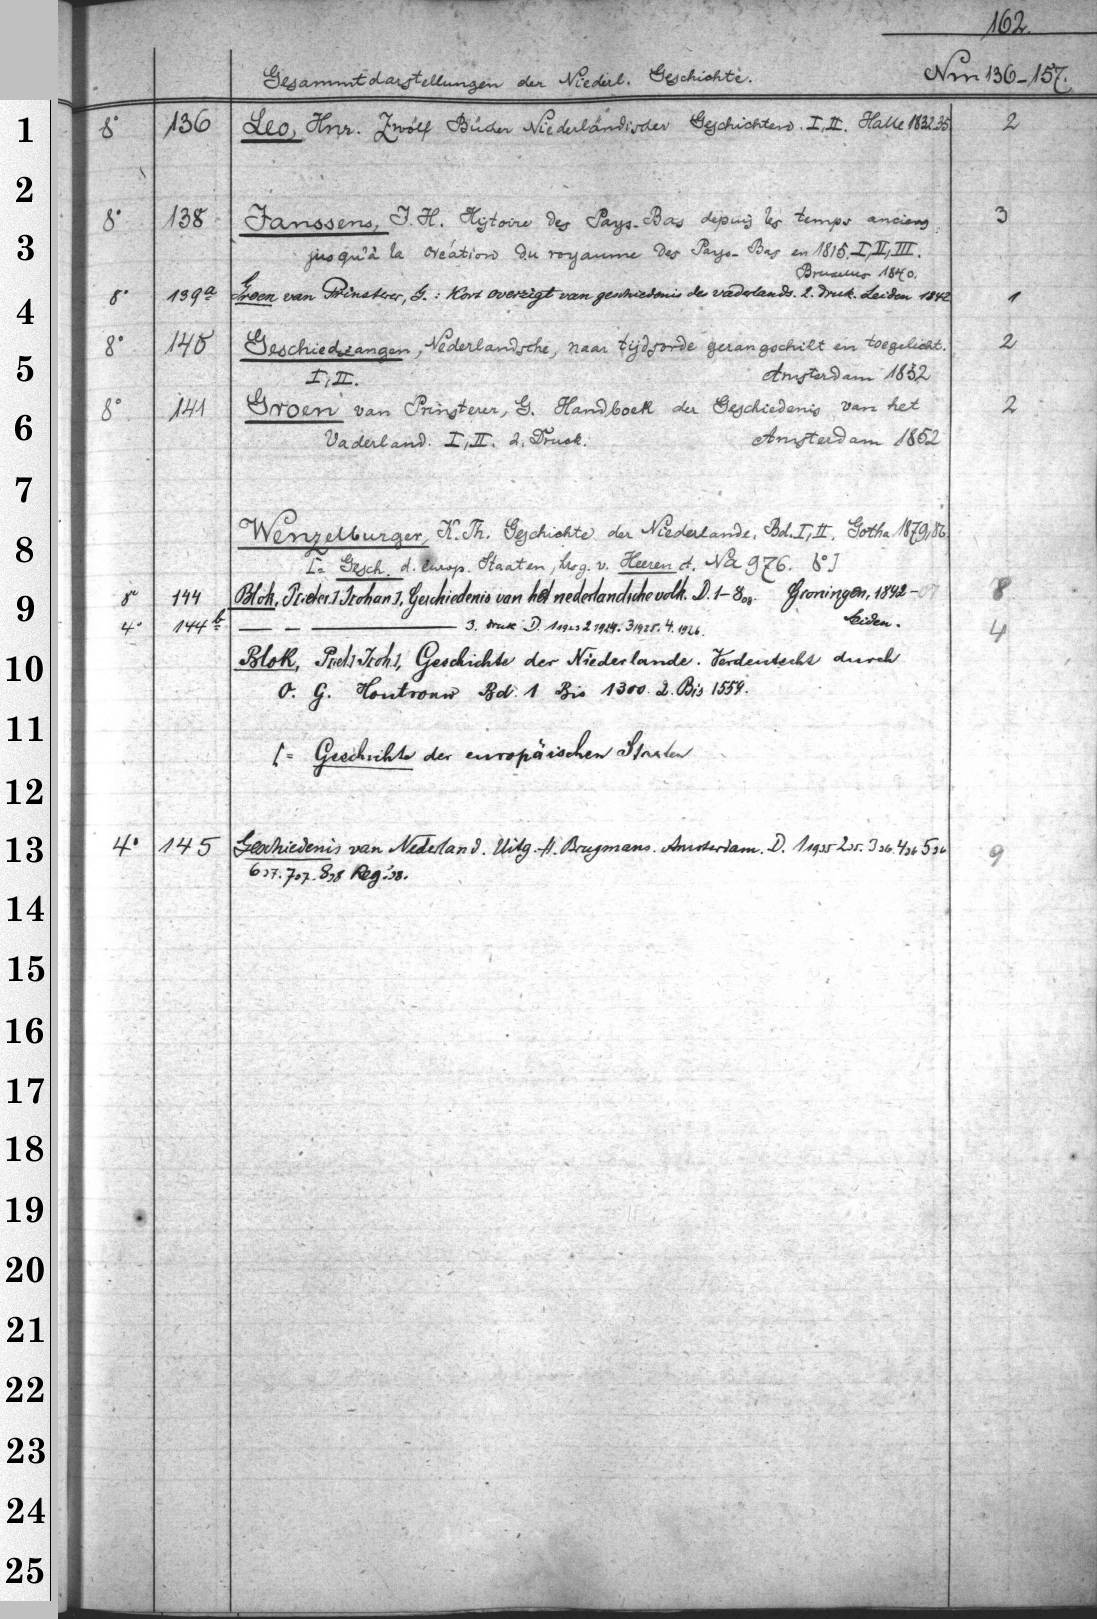 162.
Gesammtdarstellungen der Niederl. Geschichte. Nrn 136-157.
1 8° 136 Leo, Hnr. Zwölf Bücher Niederländischer Geschichten. I, II. Halle 1832.35 2
2
8° 138 Janssens, J. H. Histoire des Pays-Bas depuis les temps anciens 3
3 jusqu'à la création du royaume des Pays-Bas en 1815. I, II, III.
Bruxelles 1840.
4 8° 139a Groen van Prinsterer, G.: Kort overzigt van geschiedenis des vaderlands. 2. druk. Leiden 1842 1
8° 140 Geschiedzangen, Nederlandsche, naar tijdsorde gerangschikt en toegelicht. 2
5 I, II. Amsterdam 1852
8° 141 Groen van Prinsterer, G. Handboek der Geschiedenis van het 2
6 Vaderland. I, II. 2. Druck. Amsterdam 1852
7
Wenzelburger, K. Th. Geschichte der Niederlande. Bd. I, II. Gotha 1879, 86.
8 [= Gesch. d. europ. Staaten, hrsg. v. Heeren et. Na 976. 8°]
9 8° 144 Blok, P[ieter] J[ohan], Geschiedenis van het nederlandsche volk. D. 1-8 08. Groningen, 1892-07 8
4° 144b — — — 3. druk D. 1 1923 2 1924. 3 1925. 4. 1926. Leiden. 4
10 Blok, P[iet.] J[oh.], Geschichte der Niederlande. Verdeutscht durch
O. G. Houtrouw Bd. 1 Bis 1300. 2. Bis 1559.
11
[= Geschichte der europäischen Staaten
12
13 4° 145 Geschiedenis van Nederland. Uitg. H. Brugmans. Amsterdam. D. 1 1935 2 35. 3 36. 4 36 5 36 9
6 37. 7 37. 8 38 Reg. 38.
14
15
16
17
18
19
20
21
22
23
24
25